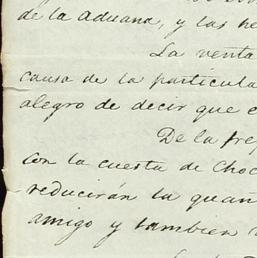 de la Aduana, y las he
La venta
causa de la particula
alegro de decir que e
De la
con la cuesta de Choc
reducirán la
amigo y tambien